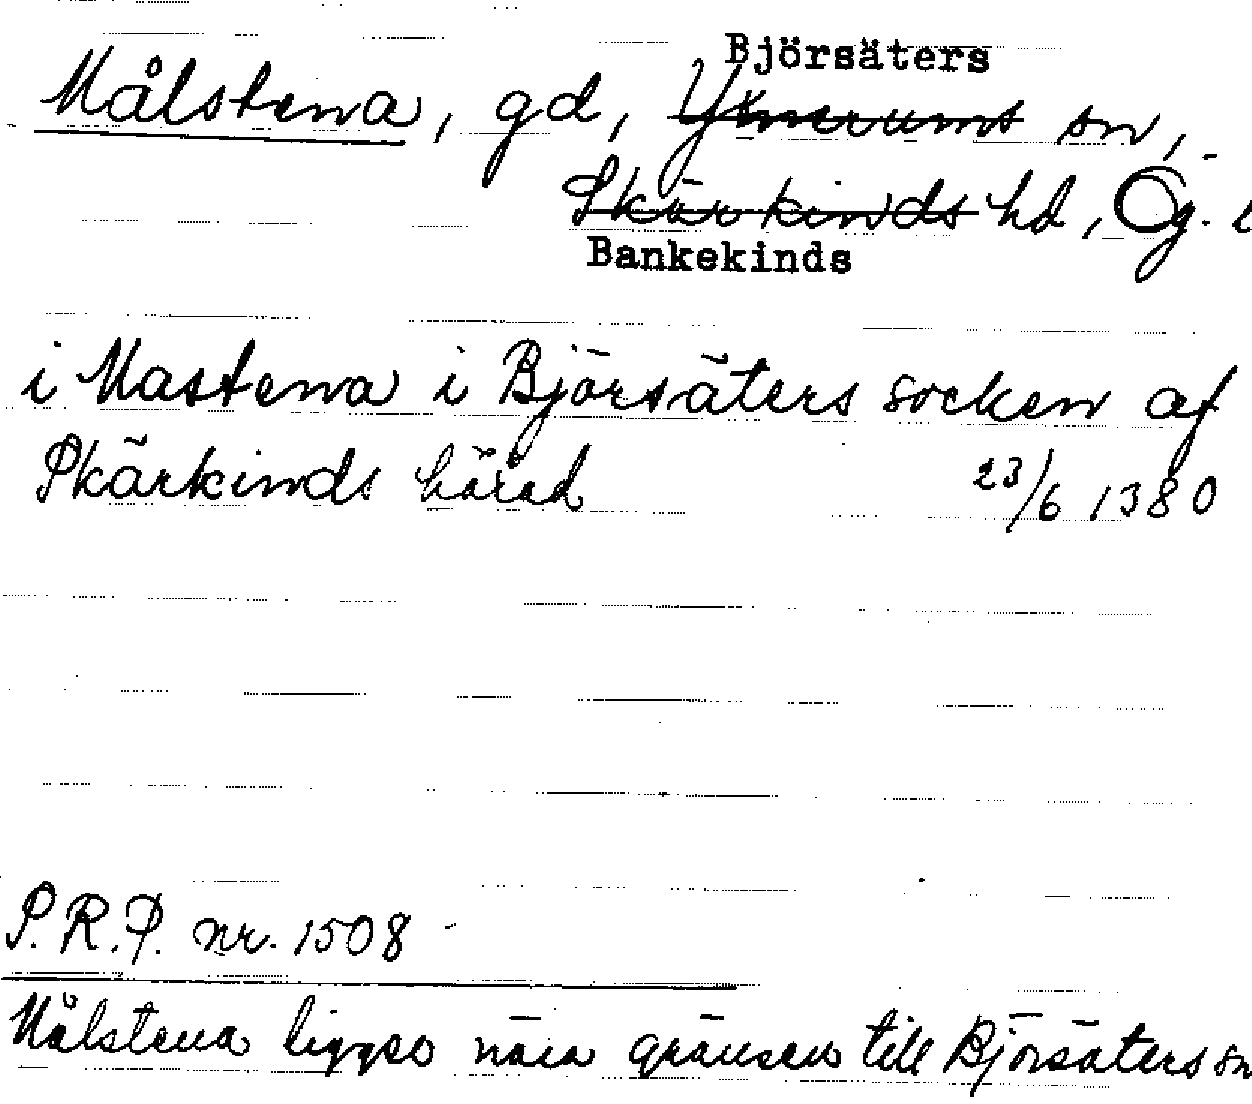 Björsäters
Målstena, gd, Ymerums sn,
Skärkinds hd, Ög.
Bankekinds
i Mastena i Björsäters socken af
Skärkinds härad 23/6 1380
S.R.P. nr. 1508
Målstena ligger nära gränsen till Björsäters sn